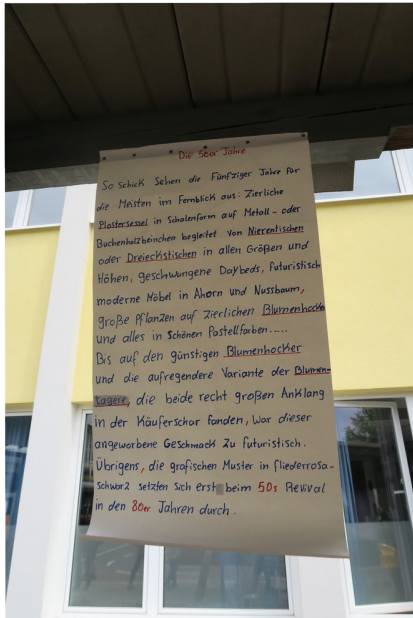 Die 50er Jahre
So schick sehen die Fünfziger Jahre für
die Meisten im Fernblick aus: Zierliche
Plostersessel in Schalenform auf Metall- oder
Buchenholzbeinchen begleitet von Nierentischen
oder Dreieckstischen in allen Größen und
Höhen, geschwungene Daybeds, futuristisch
moderne Möbel in Ahorn und Nussbaum,
große Pflanzen auf zierlichen Blumenhocker
und alles in Schönen Pastellfarben.....
Bis auf den günstigen Blumenhocker
und die aufregendere Variante der Blumen-
tagere, die beide recht großen Anklang
in der Käuferschar fanden, war dieser
angeworbene Geschmack zu futuristisch.
Übrigens, die grafischen Muster in fliederrosa-
schwarz setzten sich erst beim 50s Revival
in den 80er Jahren durch.